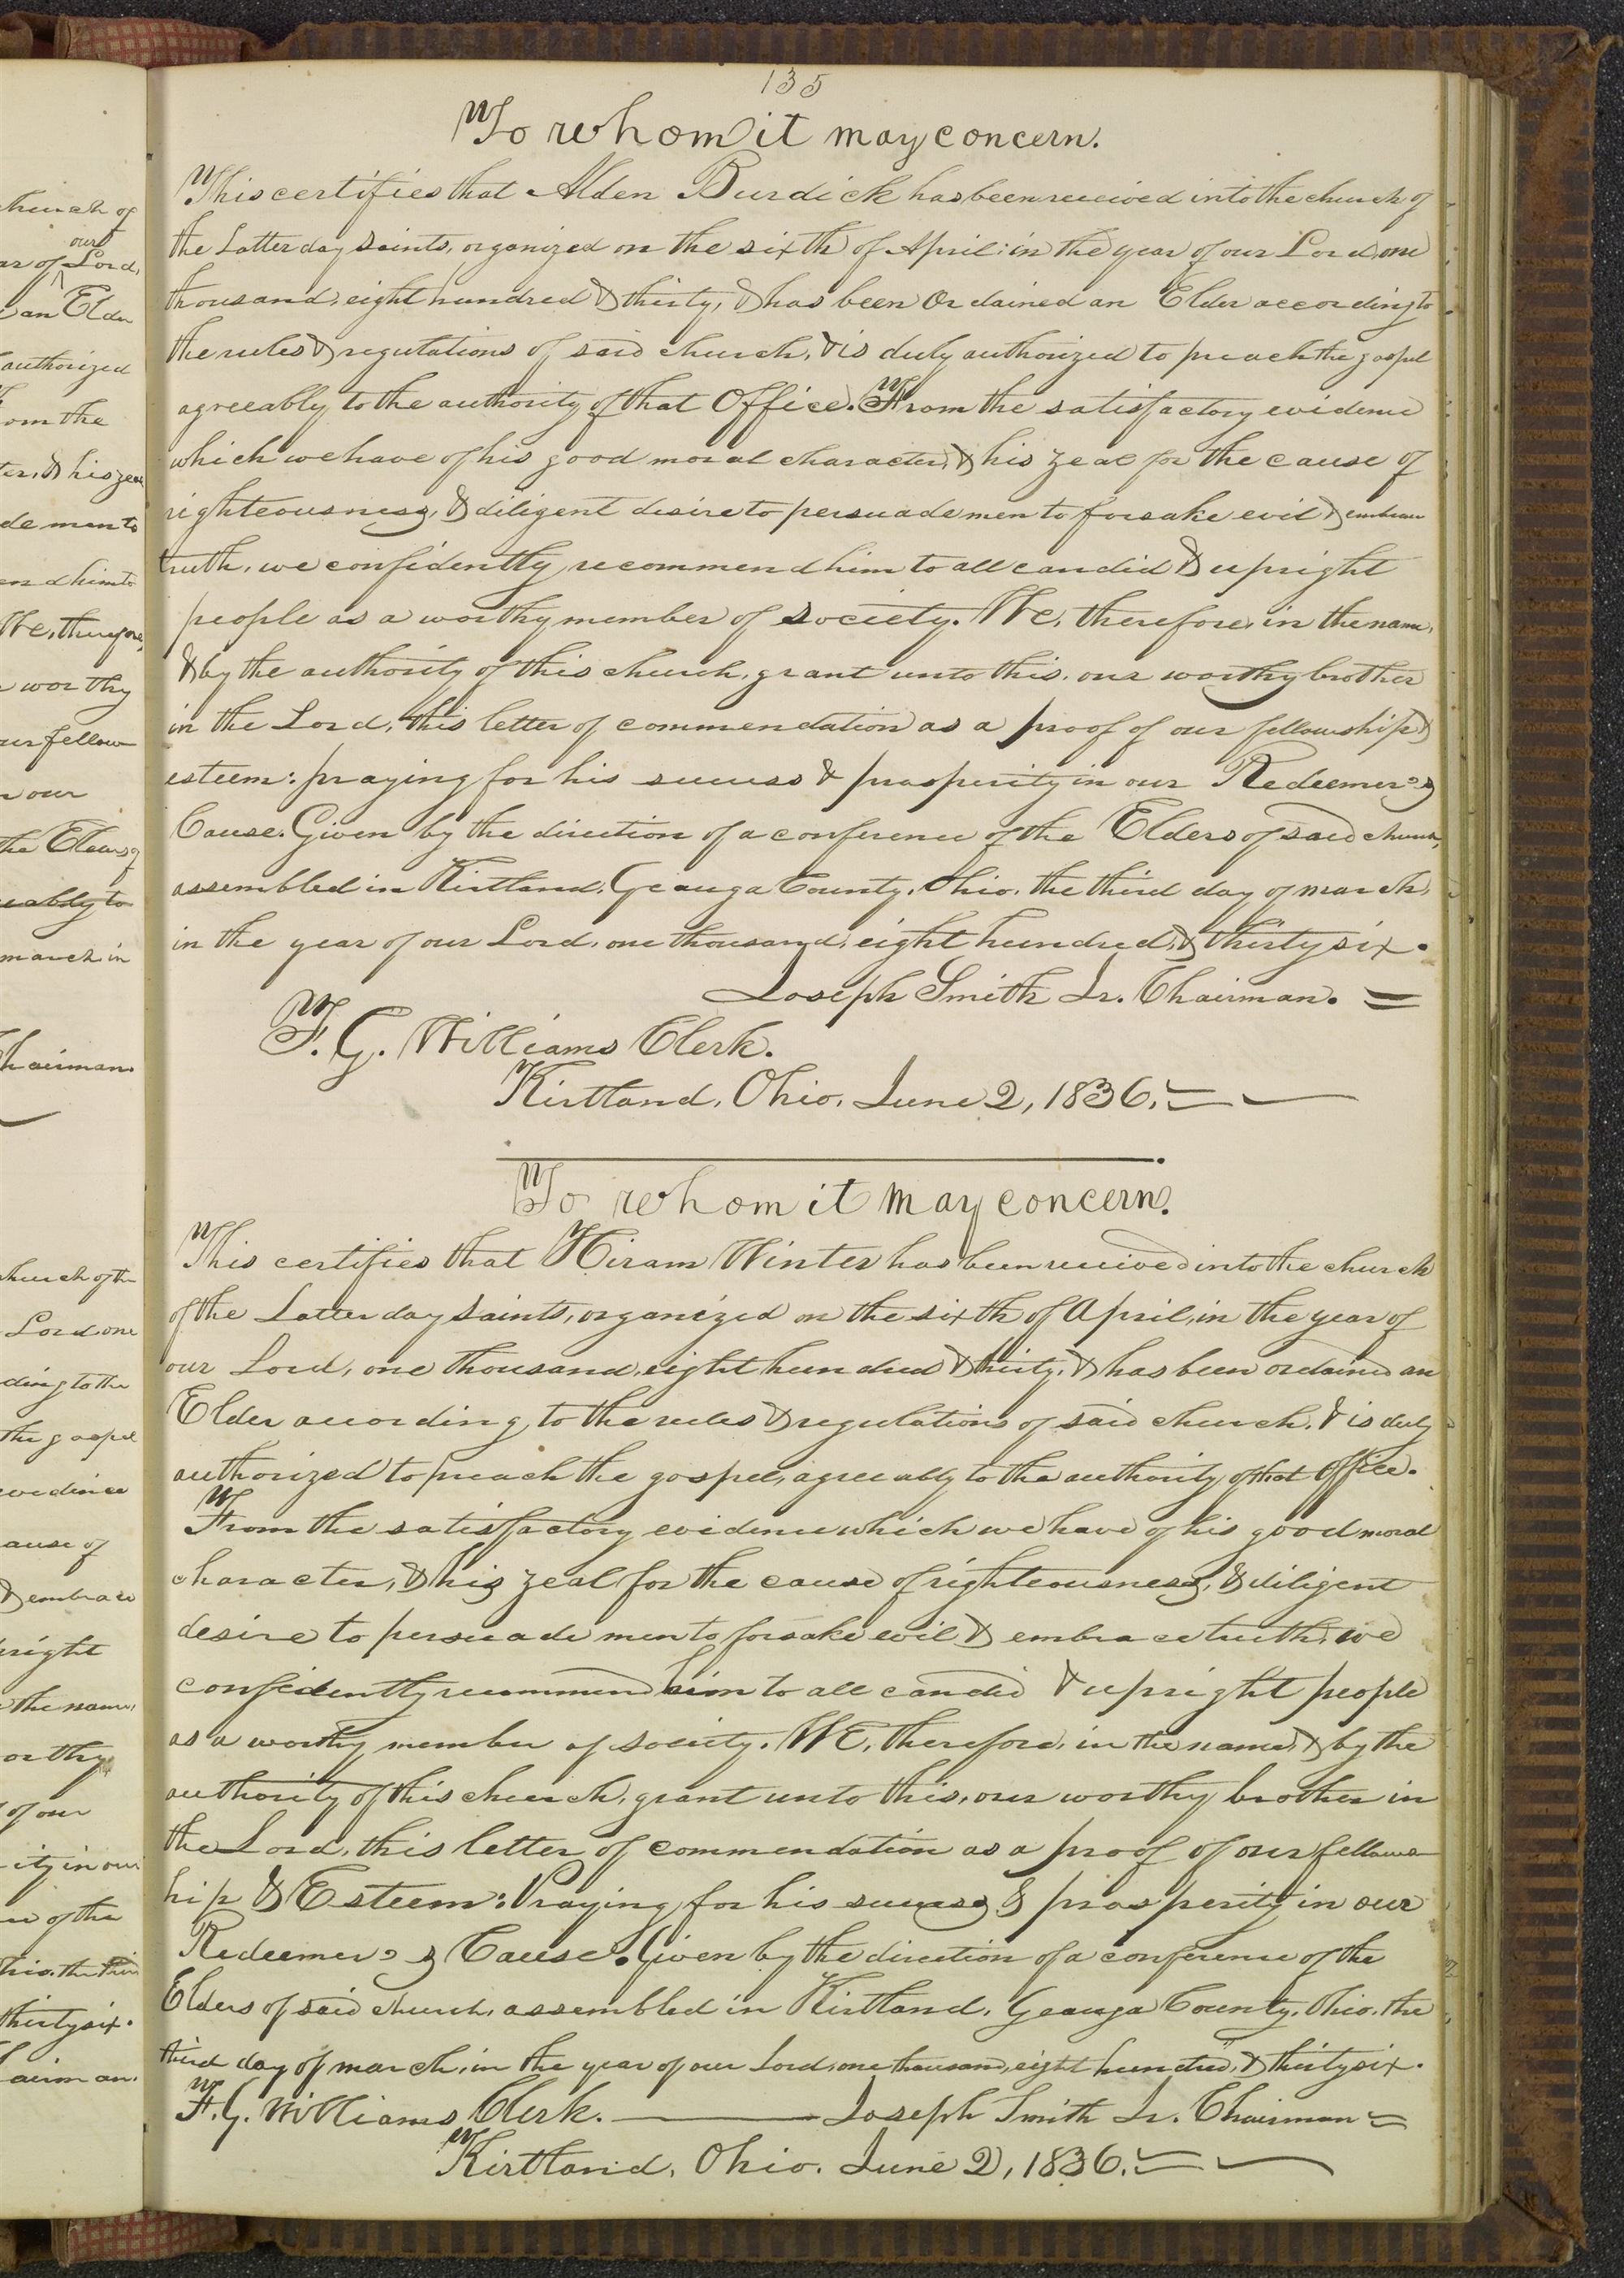 135
To whom it may concern.
This certifies that Alden Burdick has been received into the church of
the Latter day Saints, organized on the sixth of April: in the year of our Lord, one
thousand, eight hundred & thirty, & has been Ordained an Elder according to
the rules & regulations of said church, & is duly authorized to preach the gospel
agreeably to the authority of that Office. From the satisfactory evidence
which we have of his good moral character, & his zeal for the cause of
righteousness, & diligent desire to persuade men to forsake evil & embrace
truth, we confidently recommend him to all candid & upright
people as a worthy member of society. We, therefore, in the name,
& by the authority of this church, grant unto this, our worthy brother
in the Lord, this letter of commendation as a proof of our fellowship &
esteem: praying for his success & prosperity in our Redeemer's
Cause. Given by the direction of a conference of the Elders of said church,
assembled in Kirtland, Geauga County, Ohio, the third day of march,
in the year of our Lord, one thousand, eight hundred, & thirty six.
Joseph Smith Jr. Chairman. =
F. G. Williams Clerk.
Kirtland, Ohio, June 2, 1836.
To whom it may concern.
This certifies that Hiram Winter has been received into the church
of the Latter day saints, organized on the sixth of April, in the year of
our Lord, one thousand, eight hundred & thirty, & has been ordained an
Elder according to the rules & regulations of said church, & is duly
authorized to preach the gospel, agreeably to the authority of that Office.
From the satisfactory evidence which we have of his good moral
character, & his zeal for the cause of righteousness, & diligent
desire to persuade men to forsake evil & embrace truth, we
confidently recommend him to all candid & upright people
as a worthy member of society. WE, therefore, in the name, & by the
authority of this church, grant unto this, our worthy brother in
the Lord, this letter of commendation as a proof of our fellows
hip & Esteem: Praying for his success & prosperity in our
Redeemer's Cause. Given by the direction of a conference of the
Elders of said church, assembled in Kirtland, Geauga County, Ohio, the
third day of march, in the year of our Lord, one thousand, eight hundred, & thirty six.
F. G. Williams Clerk. Joseph Smith Jr. Chairman =
Kirtland, Ohio. June 2, 1836.